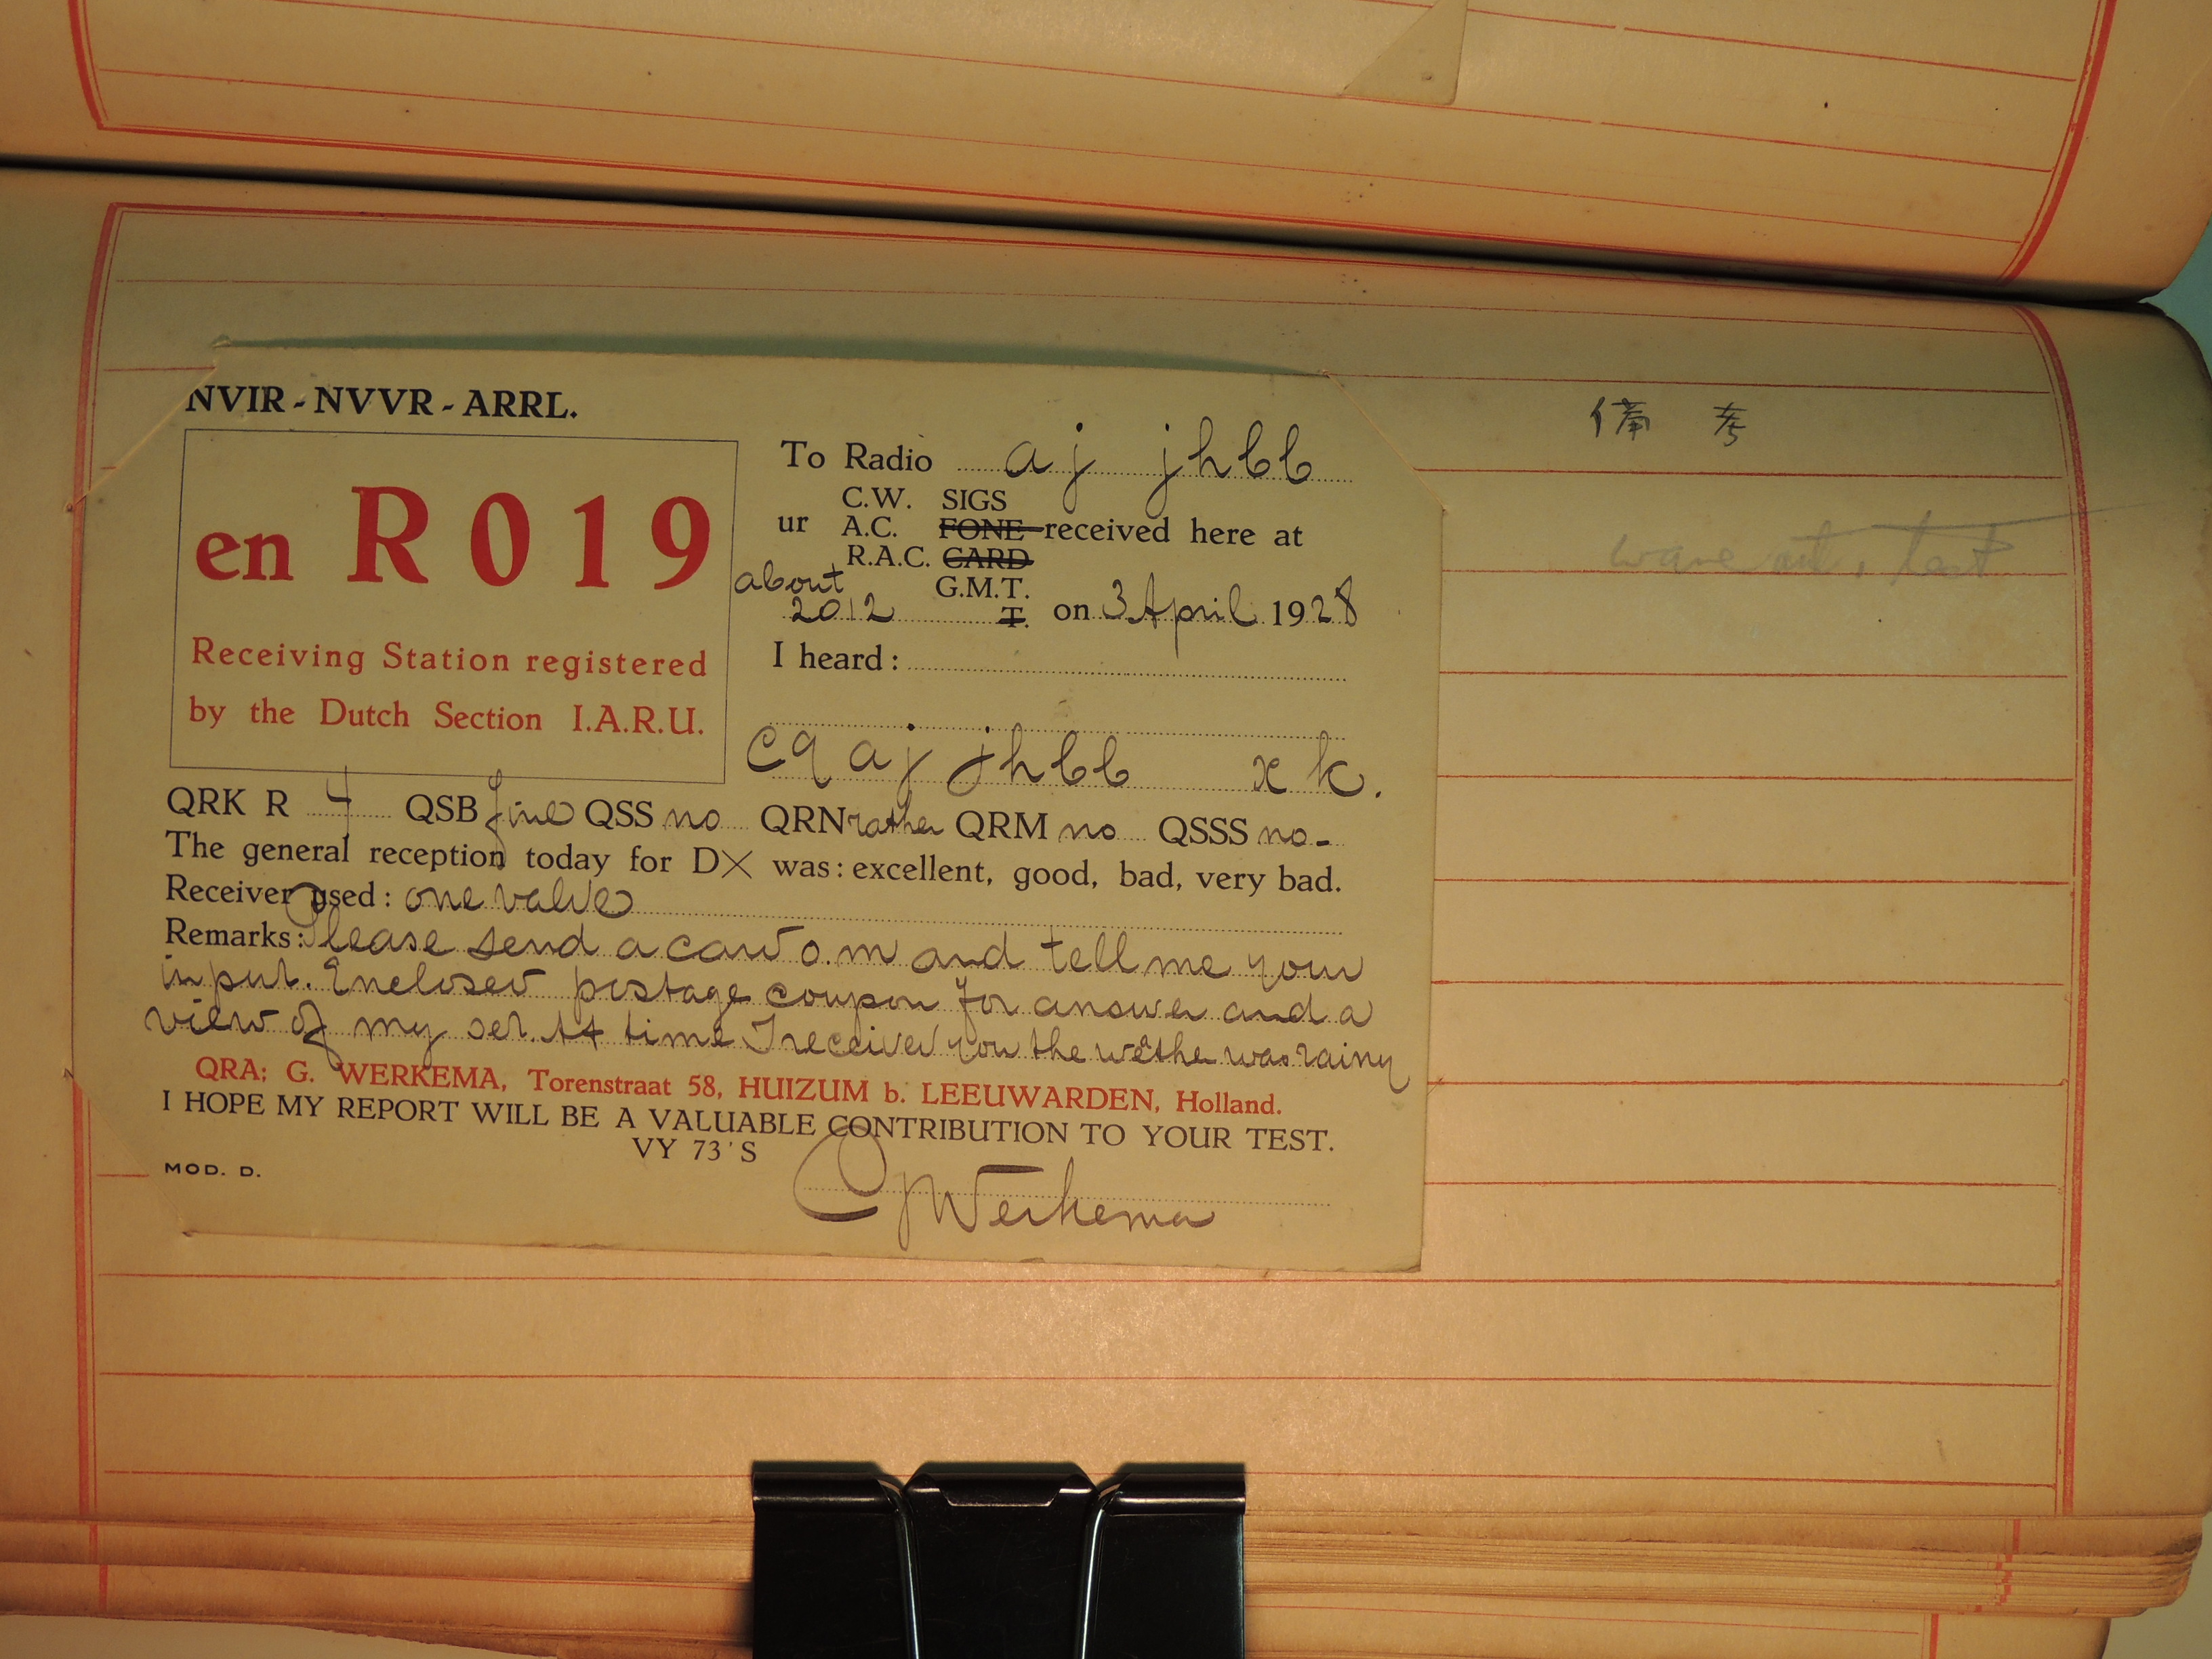 NVIR - NVVR - ARRL.
en R 0 1 9
Receiving Station registered
by the Dutch Section I.A.R.U.
To Radio aj jhbb
C.W. SIGS
ur A.C. FONE received here at
R.A.C. CARD
about G.M.T.
2012 T. on 3 April 1928
I heard:
cq aj jhbb x k.
QRK R 4 QSB fine QSS no QRN rather QRM no QSSS no-
The general reception today for DX was: excellent, good, bad, very bad.
Receiver used: one valve
Remarks: Please send a card o.m and tell me your
input. Enclosed postage coupon for answer and a
view of my set. At time I received you the wether was rainy
QRA: G. WERKEMA, Torenstraat 58, HUIZUM b. LEEUWARDEN, Holland.
I HOPE MY REPORT WILL BE A VALUABLE CONTRIBUTION TO YOUR TEST.
VY 73'S
MOD. D.
GWerkema
備考
wave test